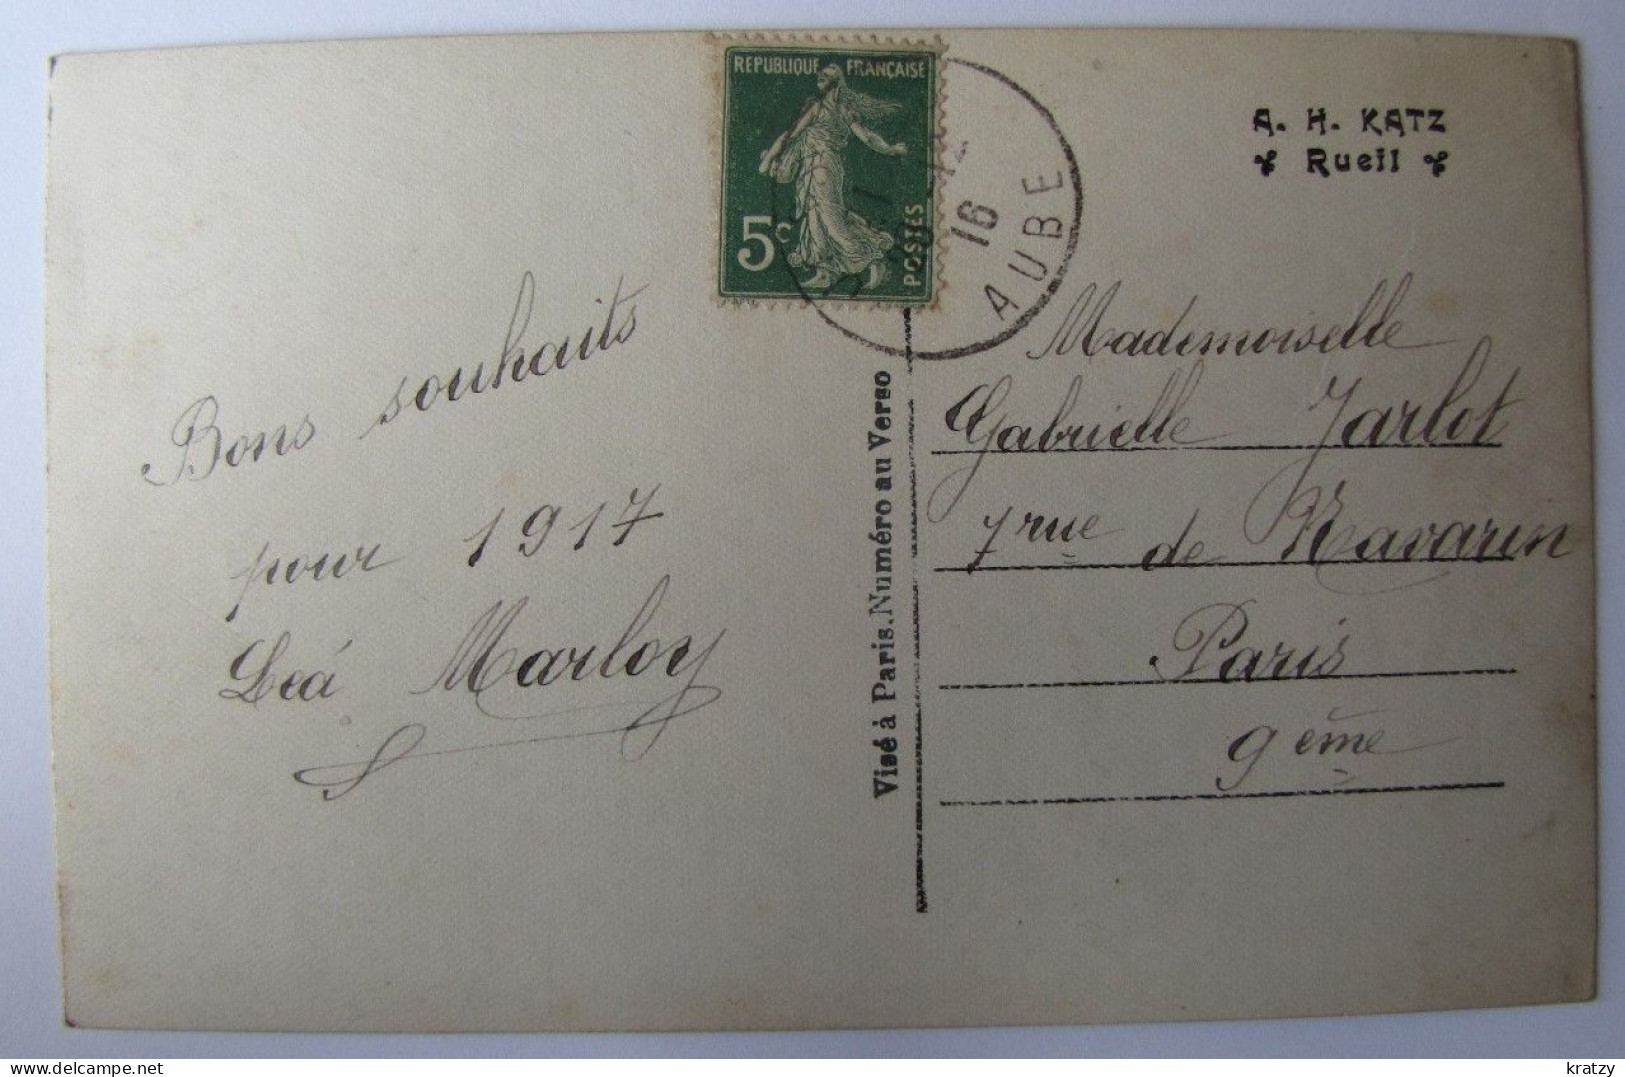 REPUBLIQUE FRANÇAISE
5c
POSTES
16
AUBE
A. H. KATZ
Rueil
Bons souhaits
pour 1917
Leá Marloy
Visé à Paris. Numéro au Verso
Mademoiselle
Gabrielle Jarlot
7 rue de Navarin
Paris
9 ème
kratzy